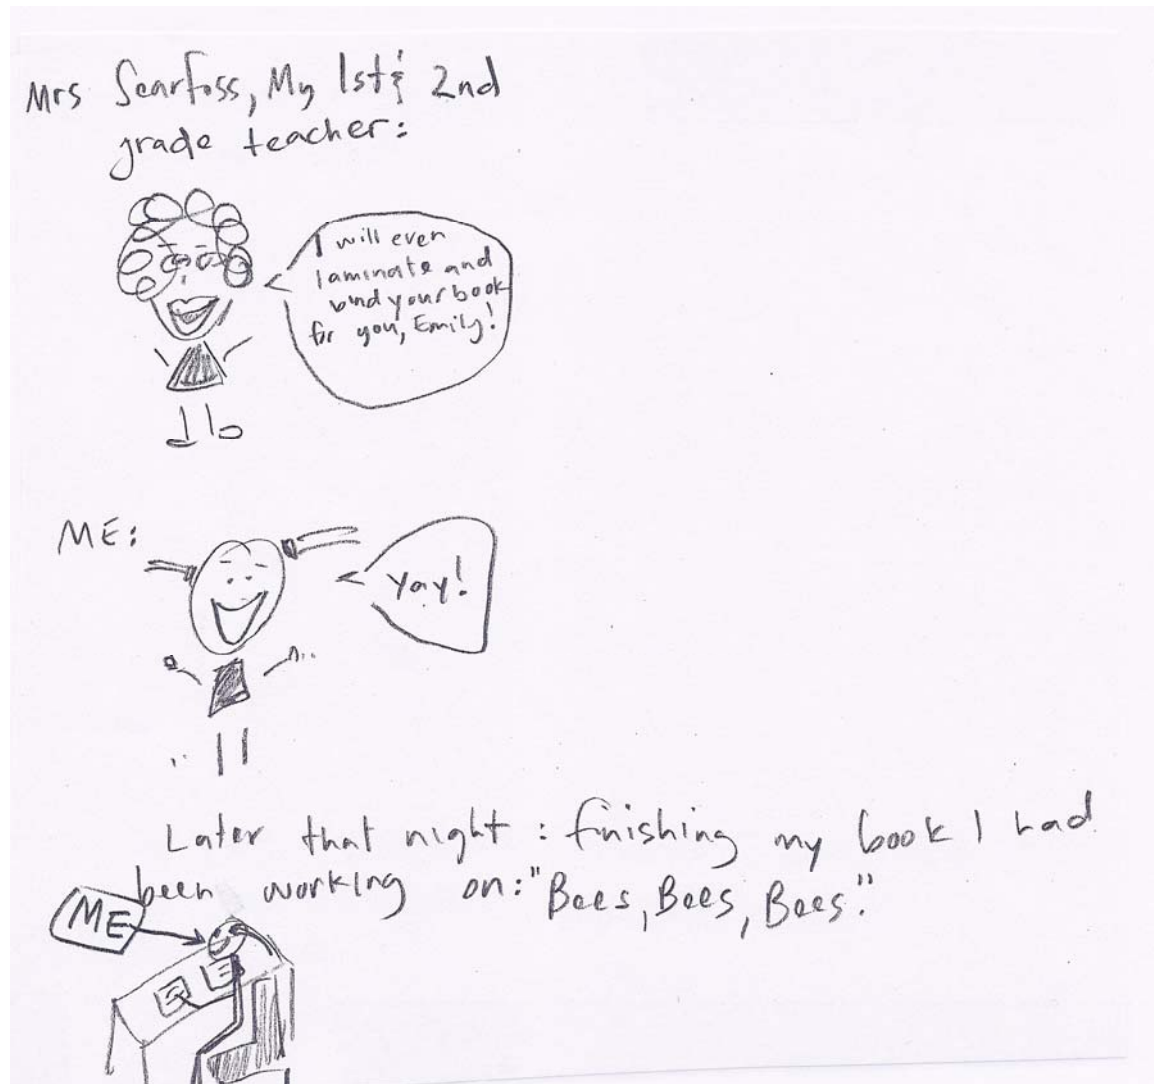 Mrs Searfoss, My 1st & 2nd
grade teacher:
I will even
laminate and
bind your book
for you, Emily!
ME:
Yay!
Later that night: finishing my book I had
been working on: "Bees, Bees, Bees."
ME